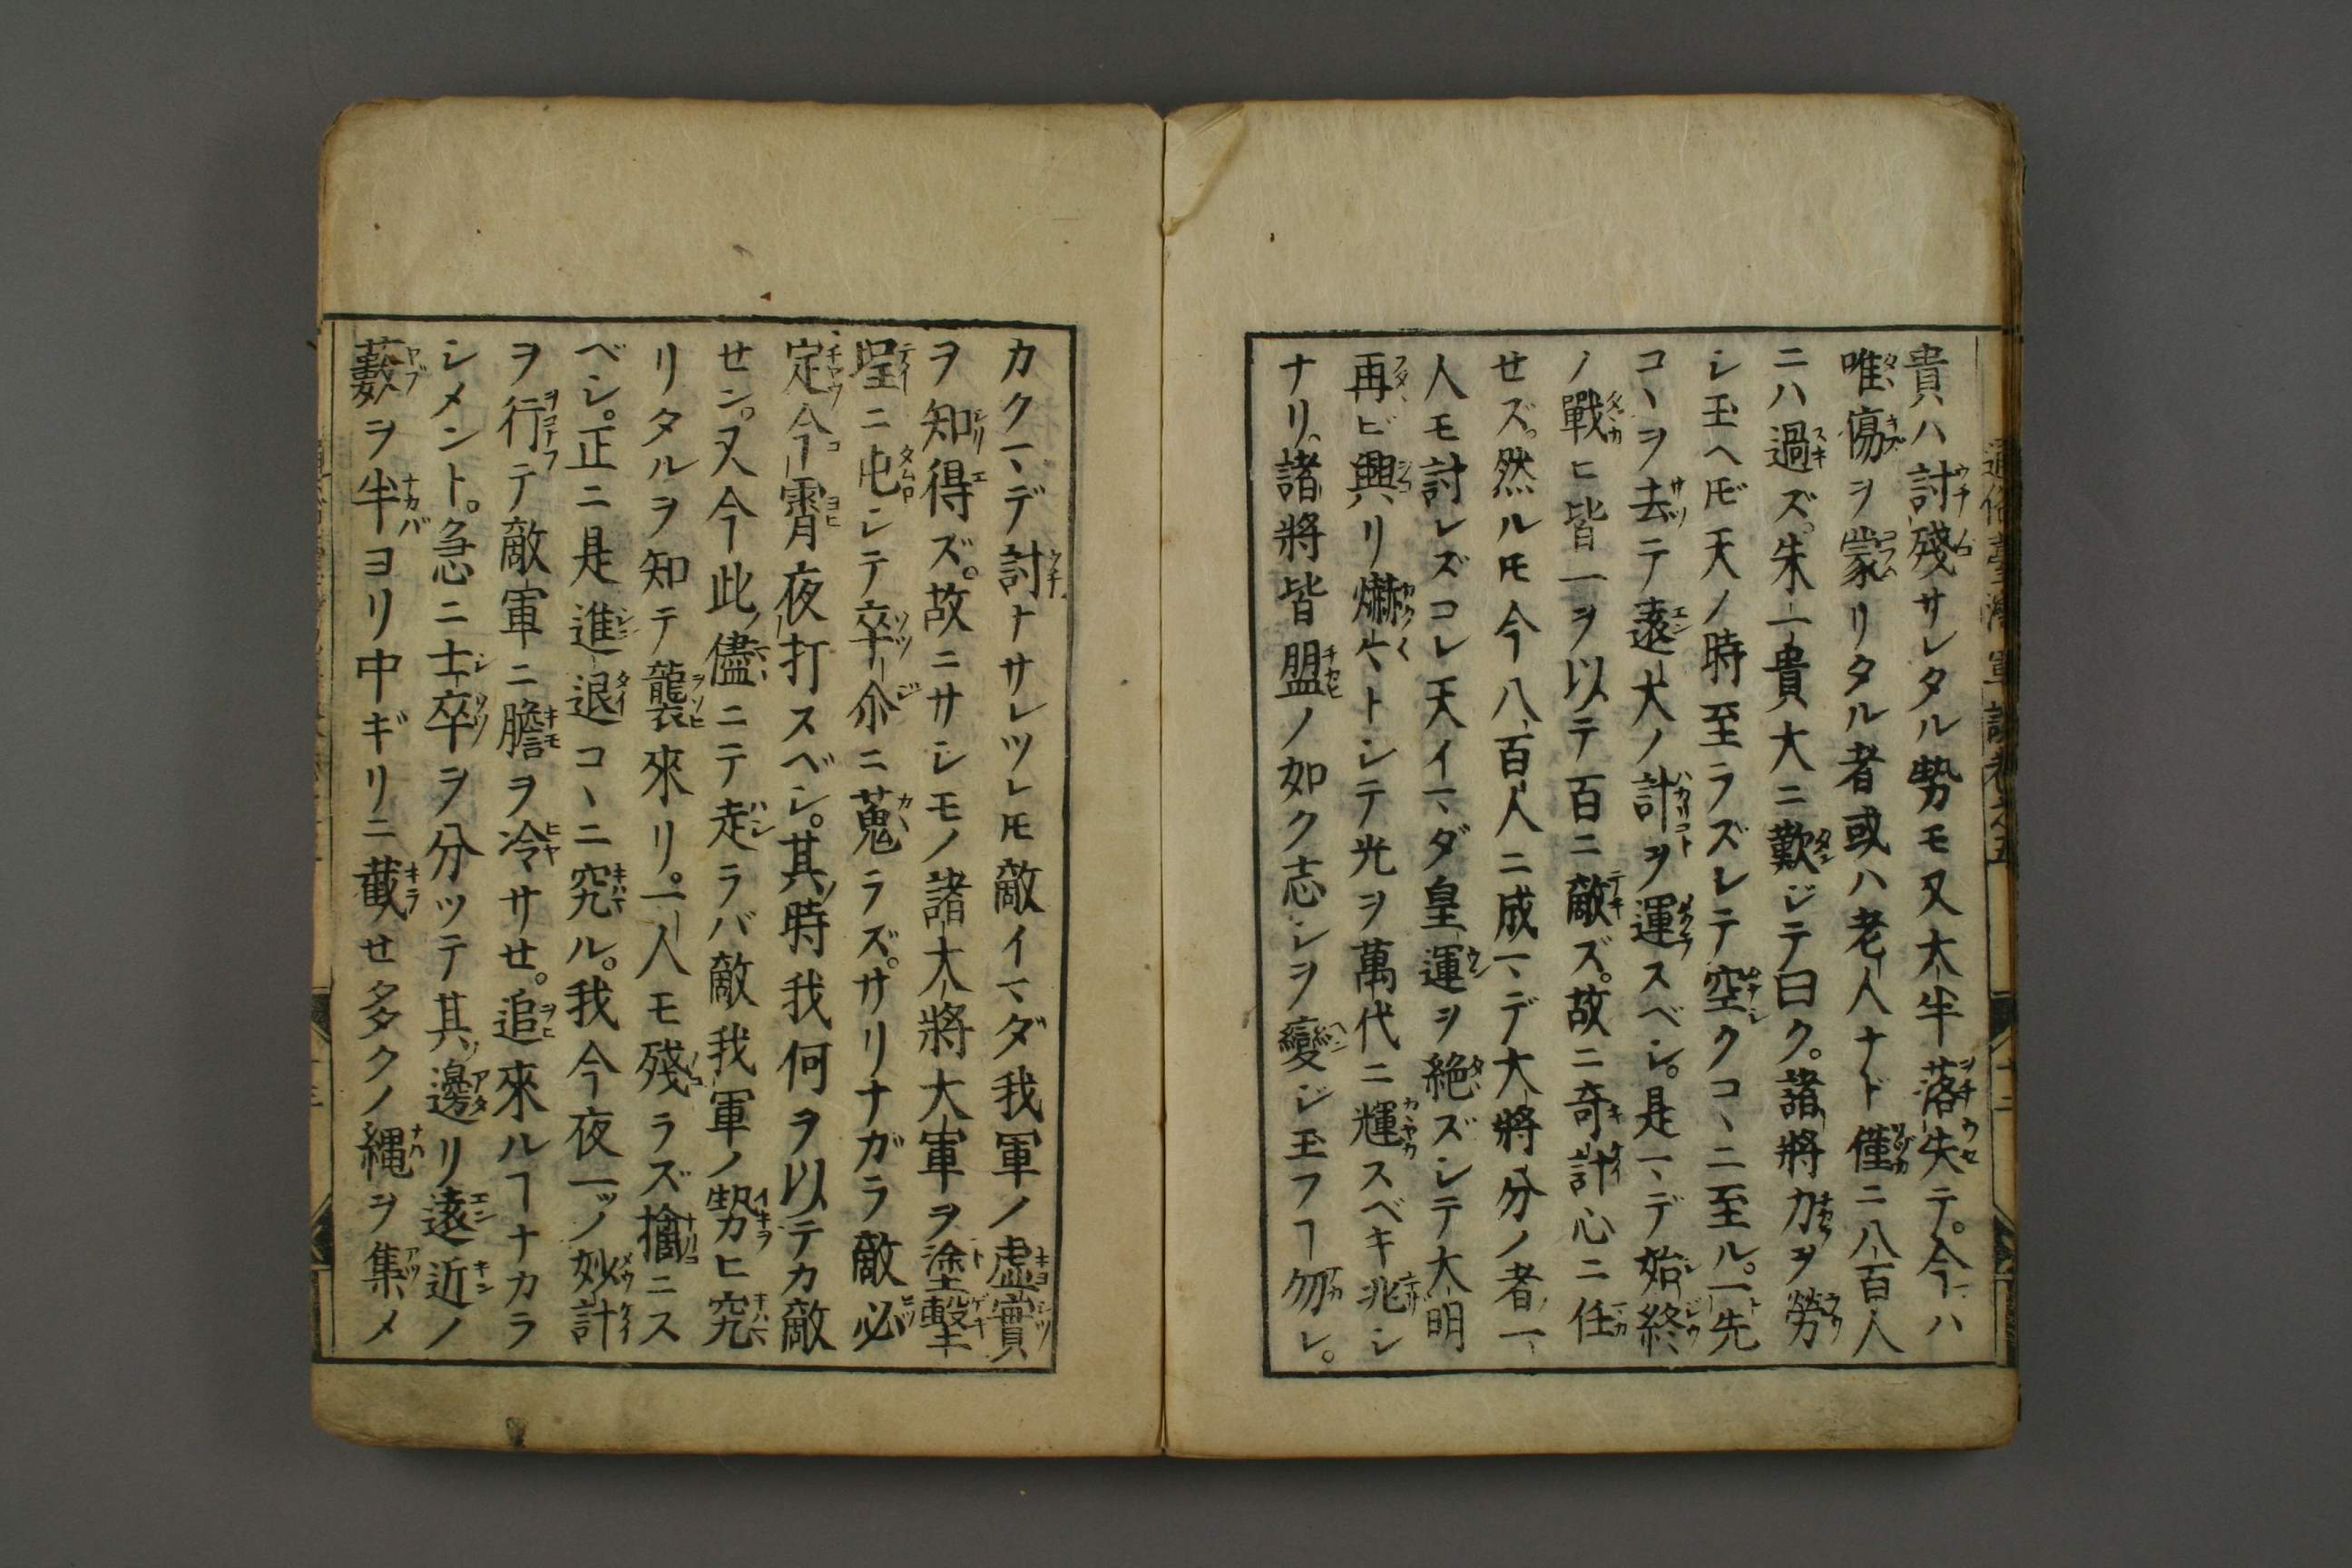 貴ハ討殘サレタル勢モ又大半落失テ。今ハ
唯傷ヲ蒙リタル者或ハ老人ナド僅ニ八百人
ニハ過ズ。朱一貴大ニ歎ジテ曰ク。諸將力ヲ勞
シ玉ヘ𪜈天ノ時至ラズレテ空クコヽニ至ル。一先
コヽヲ去テ遠大ノ計ヲ運スベシ。是マデ始終
ノ戰ヒ皆一ヲ以テ百ニ敵ズ。故ニ奇計心ニ任
せズ。然ル𪜈今八百人ニ成マデ大將分ノ者一
人モ討レズコレ天イマダ皇運ヲ絶ズシテ大明
再ビ興リ爀々トシテ光ヲ萬代ニ輝スベキ兆シ
ナリ。諸將皆盟ノ如ク志シヲ變ジ玉フヿ勿レ。
カクマデ討ナサレツレ𪜈敵イマダ我軍ノ虚實
ヲ知得ズ。故ニサシモノ諸大將大軍ヲ塗擊
埕ニ屯シテ卒尓ニ蒐ラズ。サリナガラ敵必
定今霄夜打スベシ。其時我何ヲ以テカ敵
せン。又今此儘ニテ走ラバ敵我軍ノ勢ヒ究
リタルヲ知テ襲來リ。一人モ殘ラズ擒ニス
ベシ。正ニ是進退コヽニ究ル。我今夜一ッノ妙計
ヲ行テ敵軍ニ膽ヲ冷サせ。追來ルヿナカラ
シメント。急ニ士卒ヲ分ッテ其邊リ遠近ノ
藪ヲ半ヨリ中ギリニ截せ多クノ縄ヲ集メ